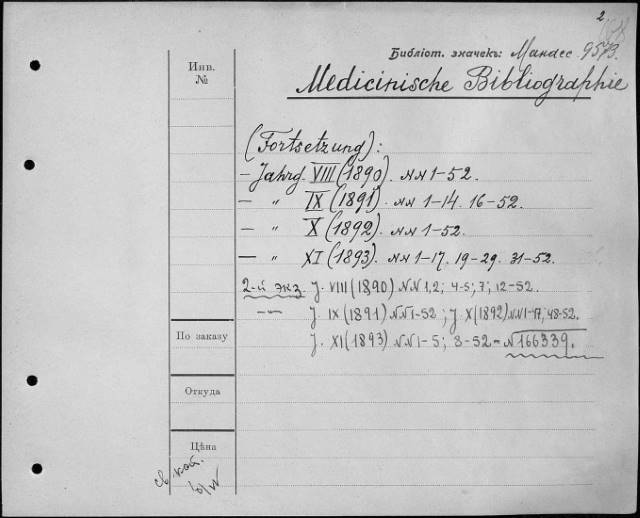 2
Библiот. значекъ: Мандес. 9573.
Инв.
№
Medicinische Bibliographie
(Fortsetzung):
- Jahrg. VIII (1890). NN 1-52.
- " IX (1891). NN 1-14. 16-52.
- " X (1892). NN 1-52.
- " XI (1893). NN 1-17. 19-29. 31-52.
2-й экз. J. VIII (1890) NN 1,2; 4-5; 7; 12-52.
-"- J. IX (1891) NN 1-52; J. X (1892) NN 1-17, 48-52.
J. XI (1893) NN 1-5; 8-52 = N 166339.
По заказу
Откуда
Цѣна